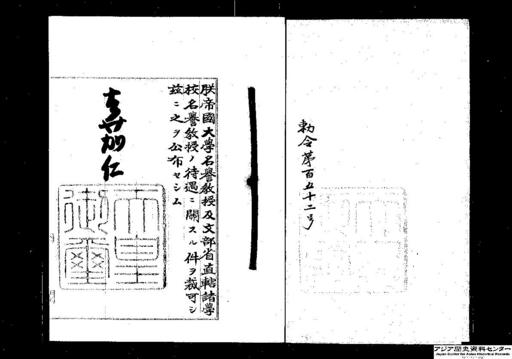 勅令第百五十二号
朕帝國大學名譽教授及文部省直轄諸學
校名譽教授ノ待遇ニ關スル件ヲ裁可シ
茲ニ之ヲ公布セシム
嘉仁
天皇御璽
アジア歴史資料センター
Japan Center for Asian Historical Records